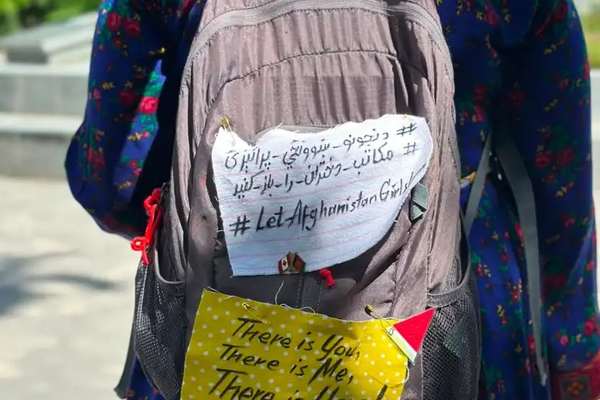 # دنجونو-ښوونځي-پرانیزئ
# مکاتب-دختران-را-باز-کنید
# LetAfghanistanGirls
There is You,
There is Me,
There is